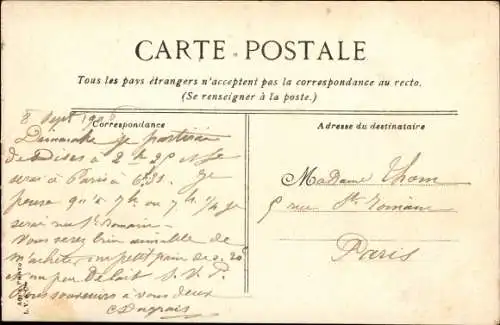 CARTE POSTALE
Tous les pays étrangers n'acceptent pas la correspondance au recto.
(Se renseigner à la poste.)
8 Sept 190
Correspondance
Adresse du destinataire
Dimanche je partirai
de à 2 h je
serai à Paris à 6.31. Je
pense qu'à 7 h ou 7 h ½ je
serai rue St Romain
Vous serez bien aimable de
m'acheter un petit pain de 20
et un peu de lait S. V. P.
souvenirs à vous deux
Madame Thom
5 rue St. Romain
Paris